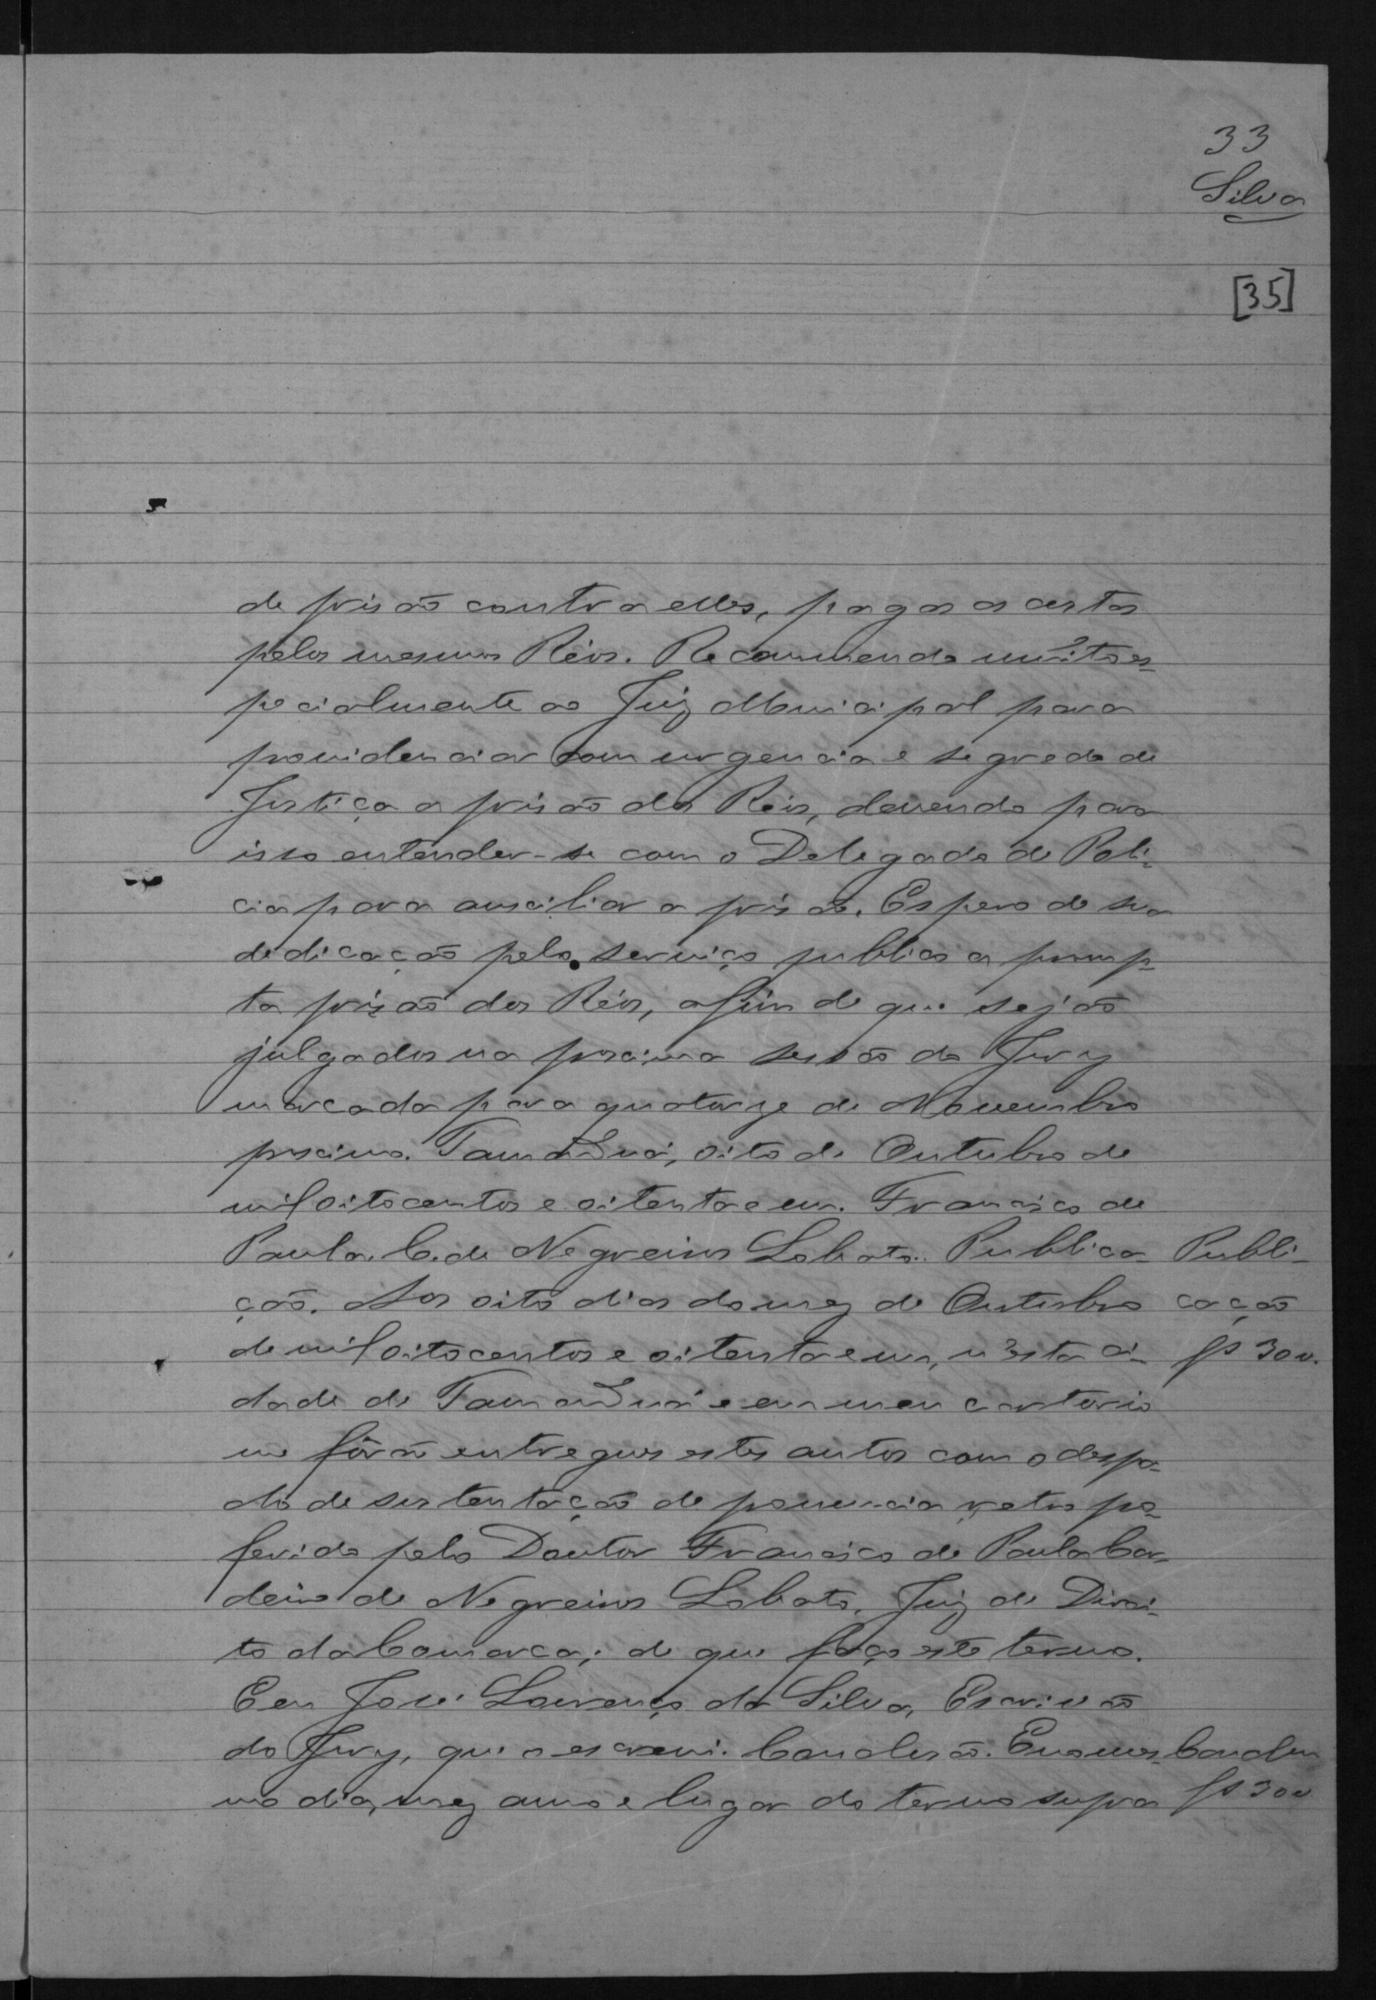 33
Silva
[35]
de prisão contra elles, pagas as custas
pelos mesmos Réos. Recommendo muito es-
pecialmente ao Juiz Municipal para
providenciar com urgencia e segredo de
Justiça a prisão dos Réos, devendo para
isso entender-se com o Delegado de Poli-
cia para auxiliar a prisão. Espero de sua
dedicação pelo serviço publico a promp-
ta prizão dos Réos, afim de que sejão
julgados na proxima sessão do Jury
marcada para quatorze de Novembro
proximo. Tamanduá, oito de Outubro de
mil oitocentos e oitenta e um. Francisco de
Paula C. de Negreiros Lobato. Publica- Publi-
ção. Aos oito dias do mez de Outubro cação
de mil oitocentos e oitenta e um, n'esta ci- fs 300.
dade de Tamanduá e em meu cartorio
me fôrão entregues estes autos com o despa-
cho de sustentação de pronuncia retro pro-
ferido pelo Doutor Francisco de Paula Cor-
deiro de Negreiros Lobato, Juiz de Direi-
to da Comarca; de que faço este termo.
Eeu José Lourenço da Silva, Escrivão
do Jury, que o escrevi. Conclusão. E no mes- Conclu
mo dia, mez anno e lugar do termo supra fs 300